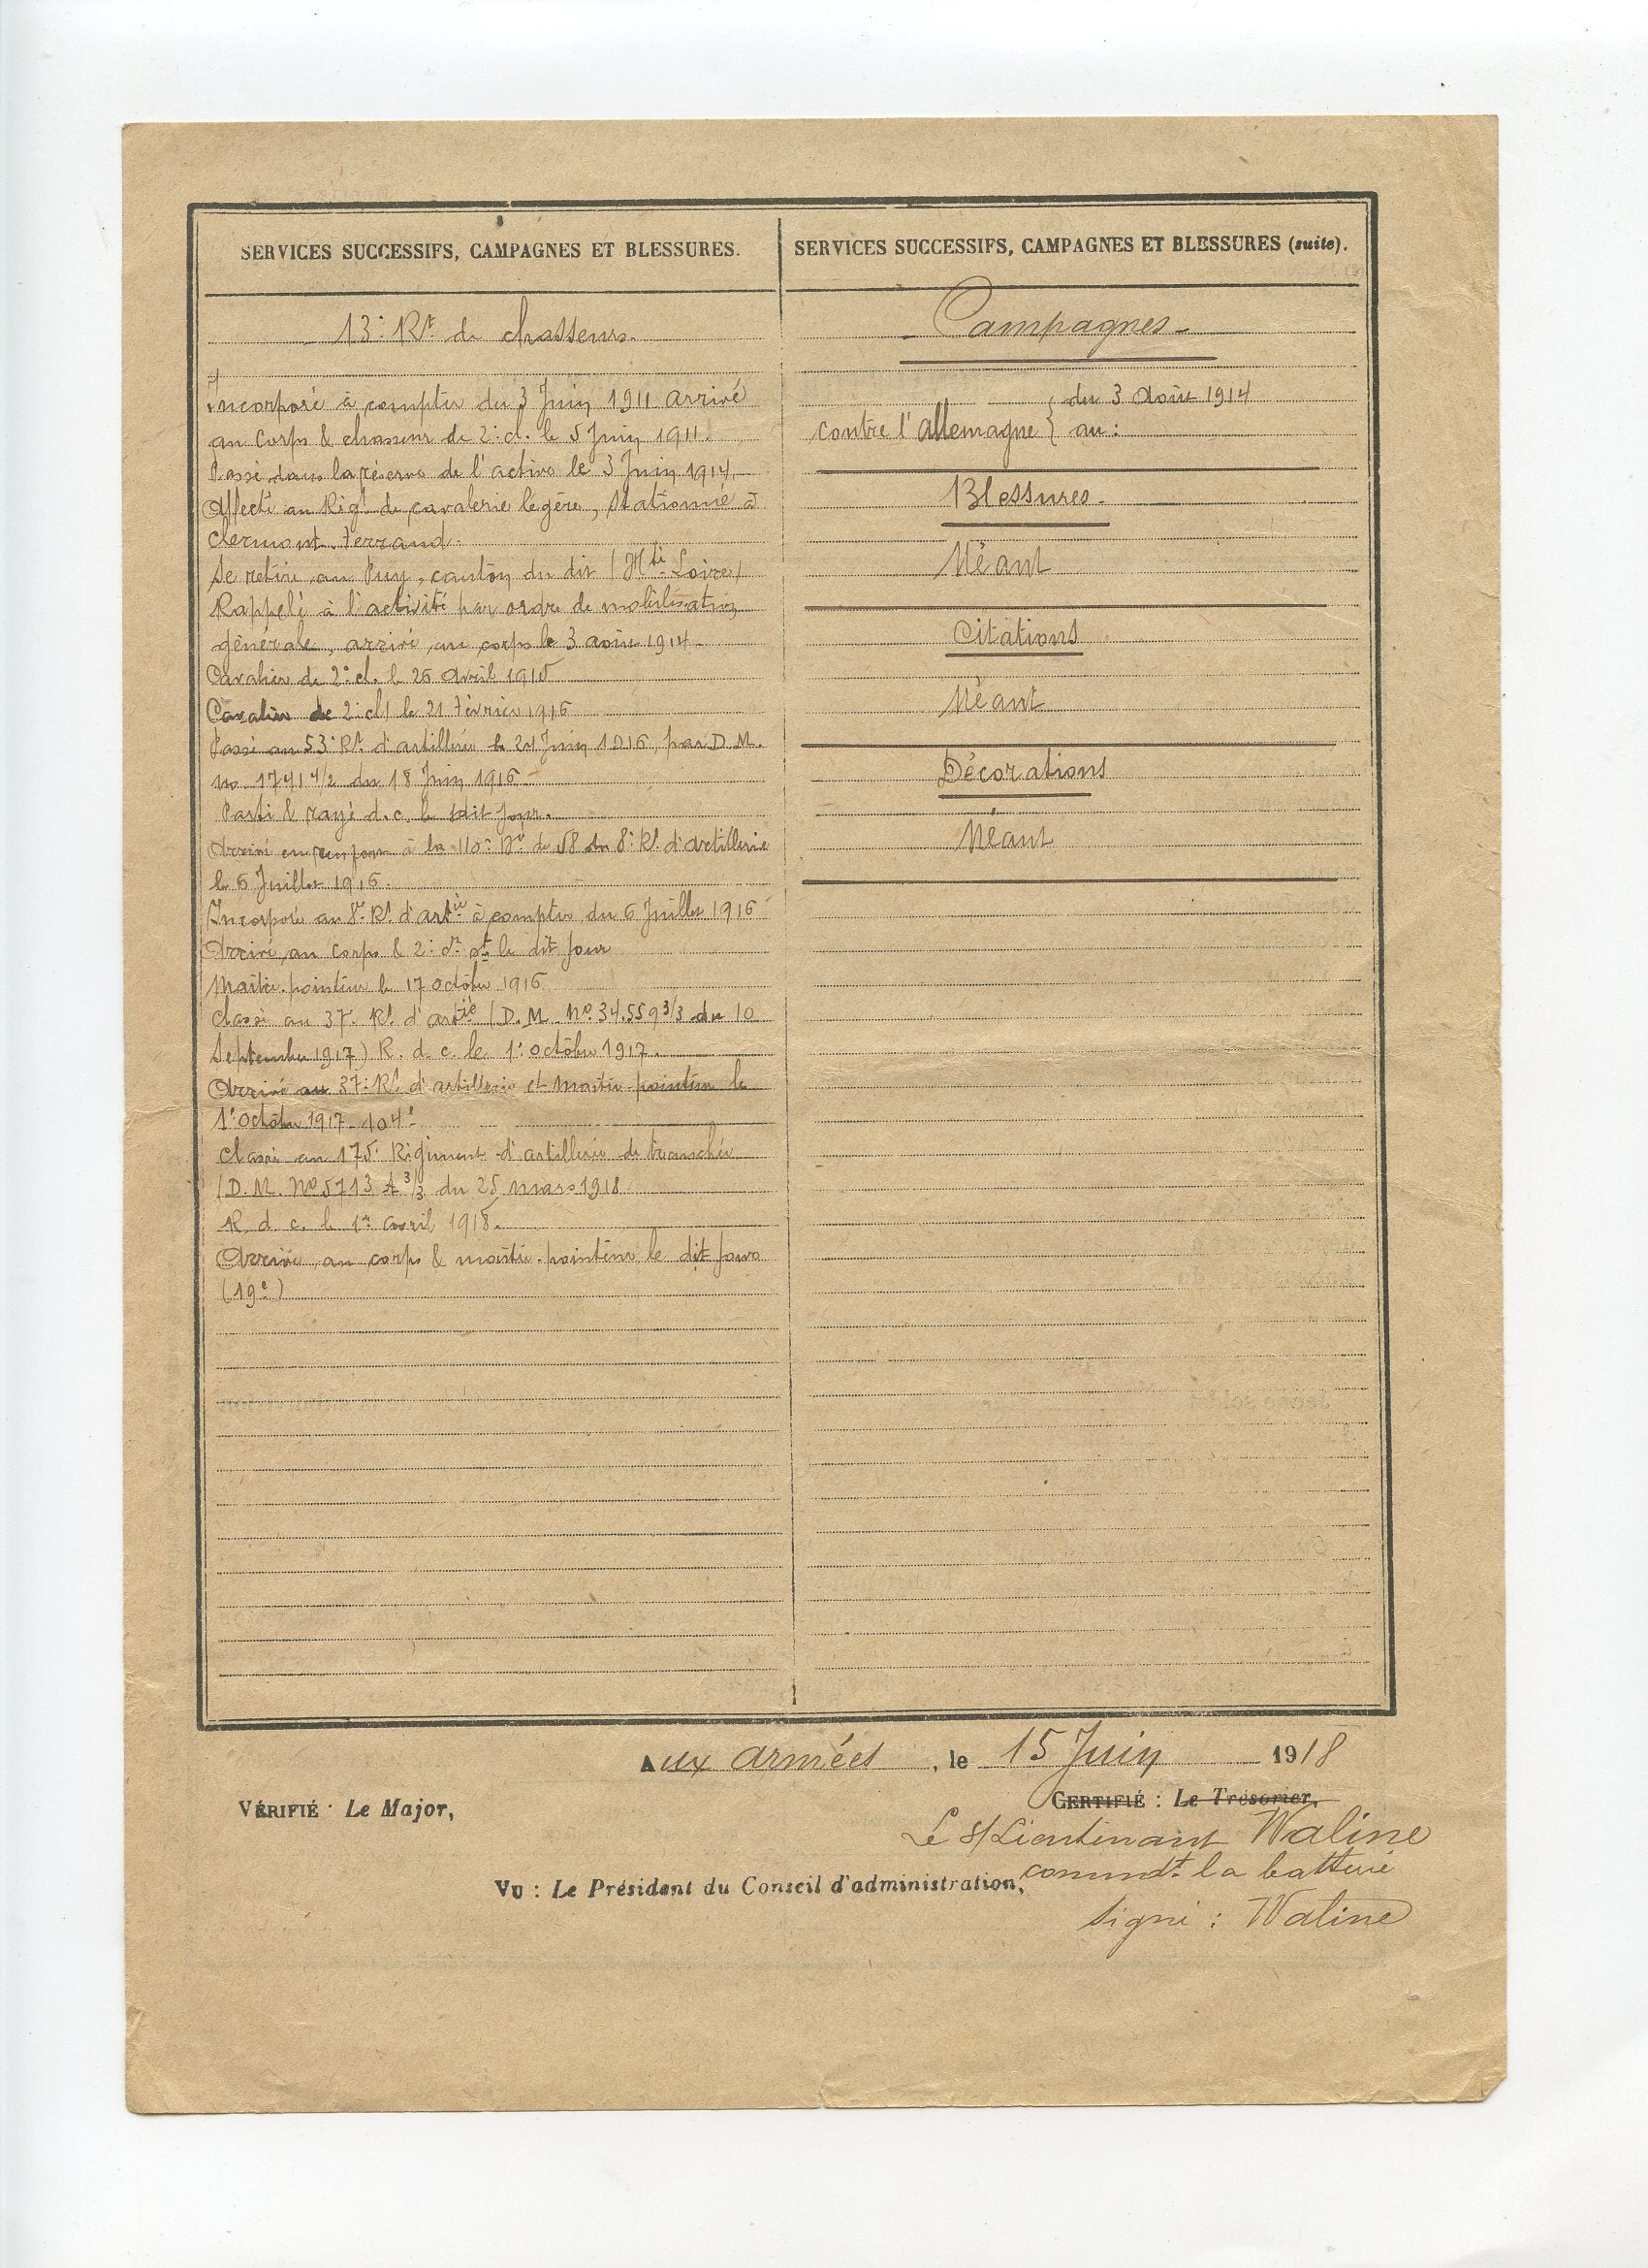 SERVICES SUCCESSIFS, CAMPAGNES ET BLESSURES.
13e Rt de chasseurs.
Incorporé à compter du 3 Juin 1911 arrivé
au Corps & chasseur de 2e cl. le 5 Juin 1911.
Passé dans la réserve de l'active le 3 Juin 1914
Affecté au Rigt de cavalerie légère, stationné à
Clermont-Ferrand.
Se retire au Puy, canton du dit (Hte Loire)
Rappelé à l'activité par ordre de mobilisation
générale, arrivé au corps le 3 août 1914
Cavalier de 2e cl. le 26 Avril 1915
Cavalier de 2e cl le 21 Février 1916
Passé au 53e Rt d'artillerie le 24 Juin 1916, par D.M.
no 1741 4/2 du 18 Juin 1916
Parti & rayé d.c. le sdit jour.
Arrivé en renfort à la 110e Bie de 58 du 8e Rt d'artillerie
le 6 Juillet 1916.
Incorporé au 8e Rt d'artie à compter du 6 Juillet 1916
Arrivé au corps & 2e le dit jour
Maitre-pointeur le 17 octobre 1916
Classé au 37e Rt d'artie (D.M. No 34.559 3/3 du 10
Septembre 1917) R. d. c. le 1er octobre 1917.
Arrivé au 37e Rt d'artillerie et maitre-pointeur le
1er octobre 1917 - 104e
Classé au 175e Régiment d'artillerie de tranchée
(D.M. No 5713 A 3/3 du 25 mars 1918
R. d. c. le 1er avril 1918.
Arrivé au corps & maitre-pointeur le dit jour
(19e)
SERVICES SUCCESSIFS, CAMPAGNES ET BLESSURES (suite).
Campagnes
du 3 Août 1914
contre l'allemagne } au :
Blessures.
Néant
Citations
Néant
Décorations
Néant
Aux armées, le 15 Juin 1918
VÉRIFIÉ : Le Major,
CERTIFIÉ : Le Trésorier,
Le s/Lieutenant Waline
commdt la batterie
VU : Le Président du Conseil d'administration,
Signé : Waline